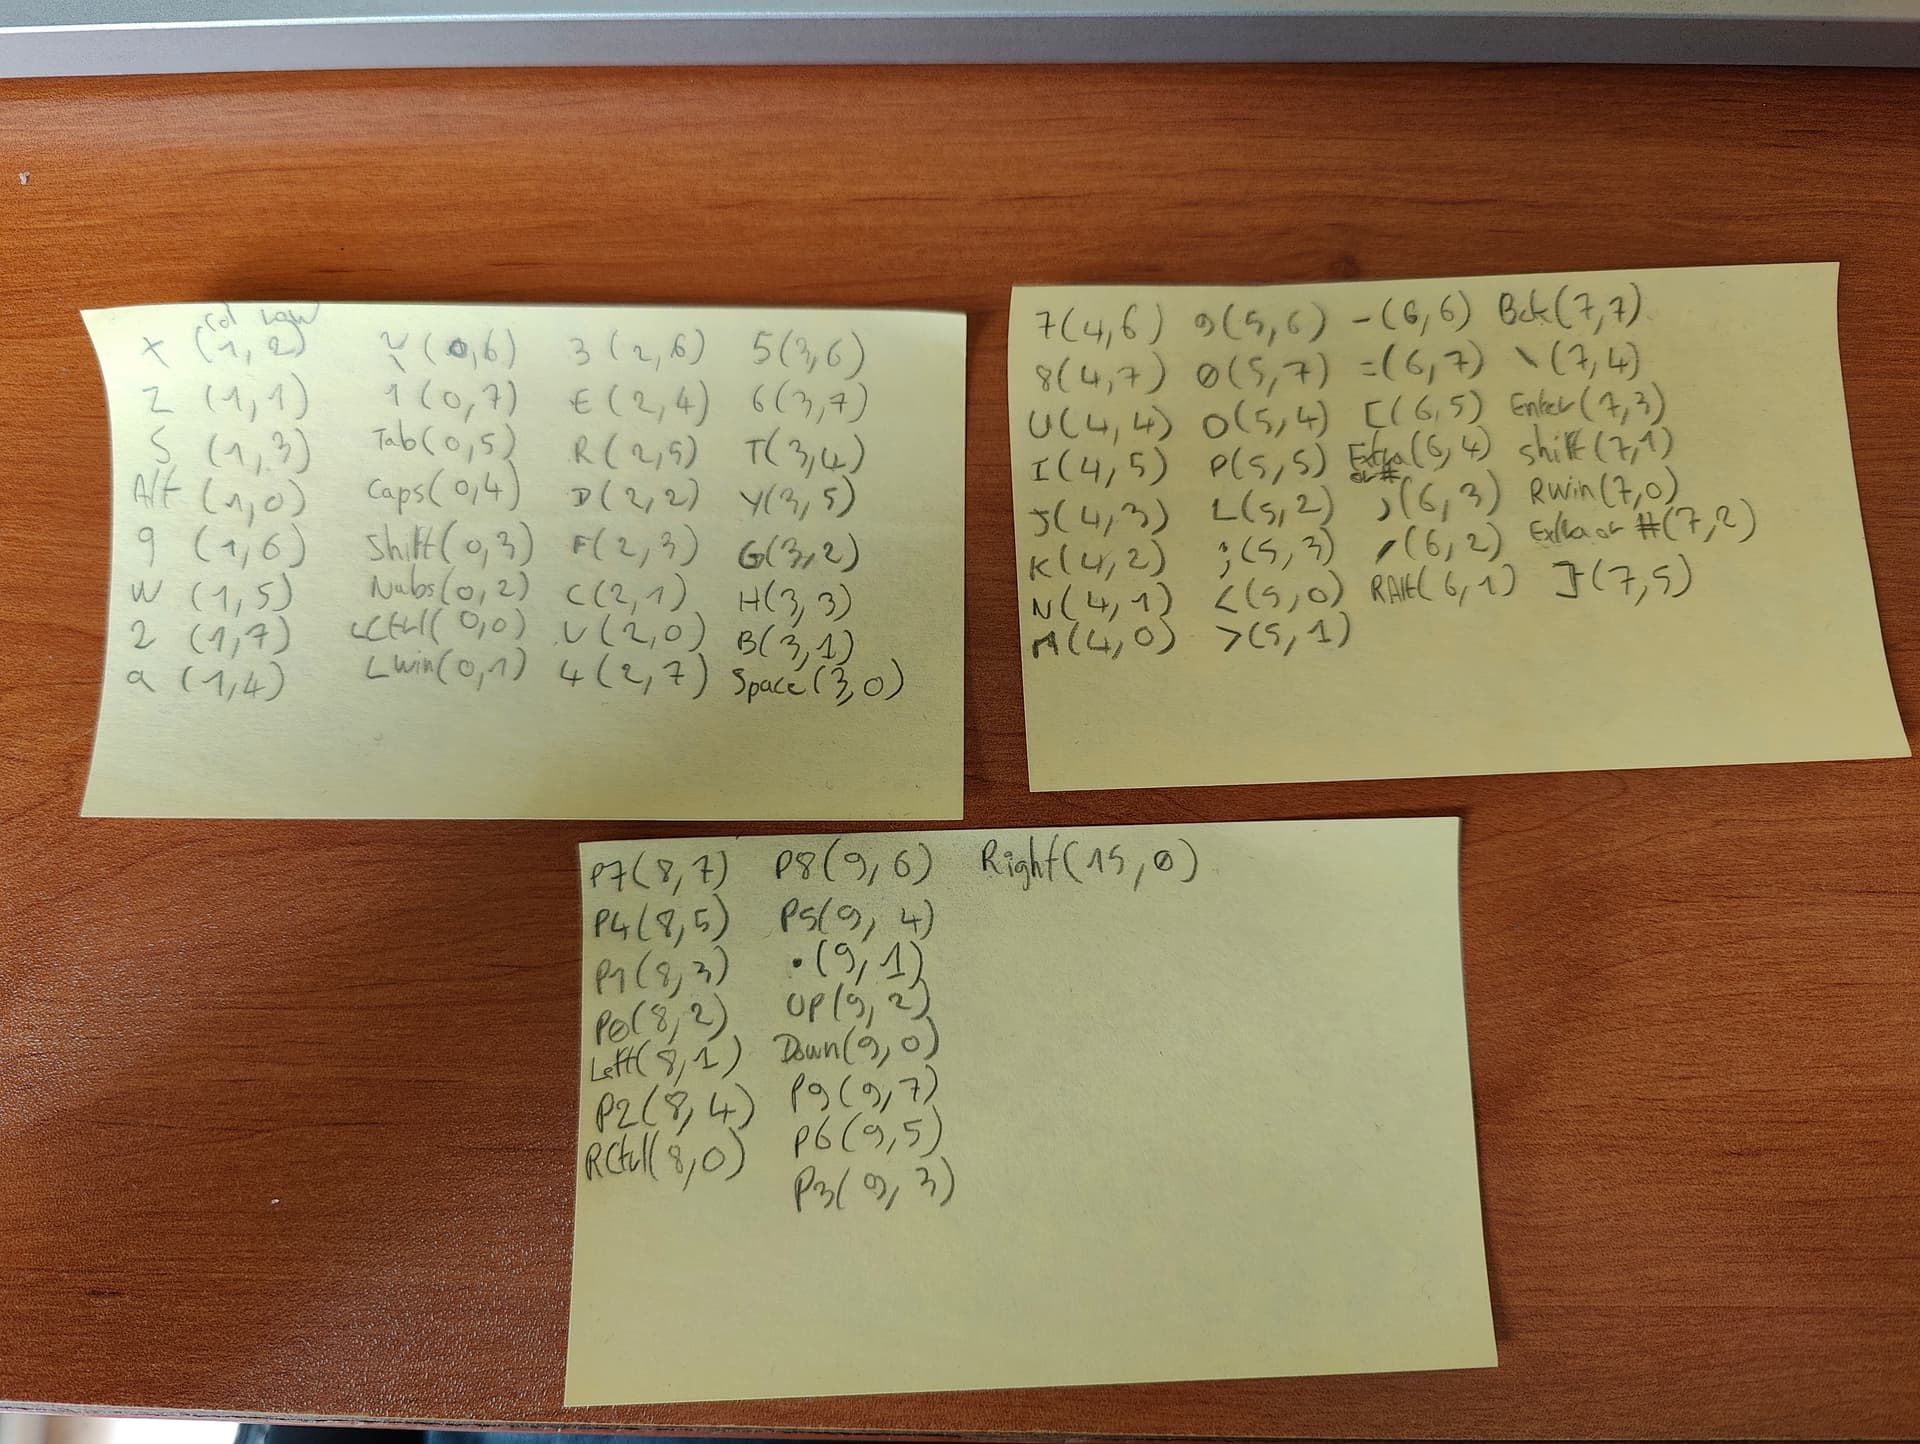 col row
X (1,2) ~ ` (0,6) 3 (2,6) 5(3,6)
Z (1,1) 1 (0,7) E (2,4) 6(3,7)
S (1,3) Tab(0,5) R (2,5) T(3,4)
Alt (1,0) Caps(0,4) D (2,2) Y(3,5)
q (1,6) Shift(0,3) F(2,3) G(3,2)
W (1,5) Nubs(0,2) C(2,1) H(3,3)
2 (1,7) LCtrl(0,0) V(2,0) B(3,1)
a (1,4) LWin(0,1) 4(2,7) Space(3,0)
7(4,6) 9(5,6) -(6,6) Bck(7,7)
8(4,7) 0(5,7) =(6,7) \(7,4)
U(4,4) O(5,4) [(6,5) Enter(7,3)
I(4,5) P(5,5) Extra or #(6,4) Shift(7,1)
J(4,3) L(5,2) (6,3) RWin(7,0)
K(4,2) ;(5,3) (6,2) Extra or #(7,2)
N(4,1) <(5,0) RAlt(6,1) ](7,5)
M(4,0) >(5,1)
P7(8,7) P8(9,6) Right(15,0)
P4(8,5) P5(9,4)
P1(8,3) .(9,1)
P0(8,2) UP(9,2)
Left(8,1) Down(9,0)
P2(8,4) P9(9,7)
RCtrl(8,0) P6(9,5)
P3(9,3)